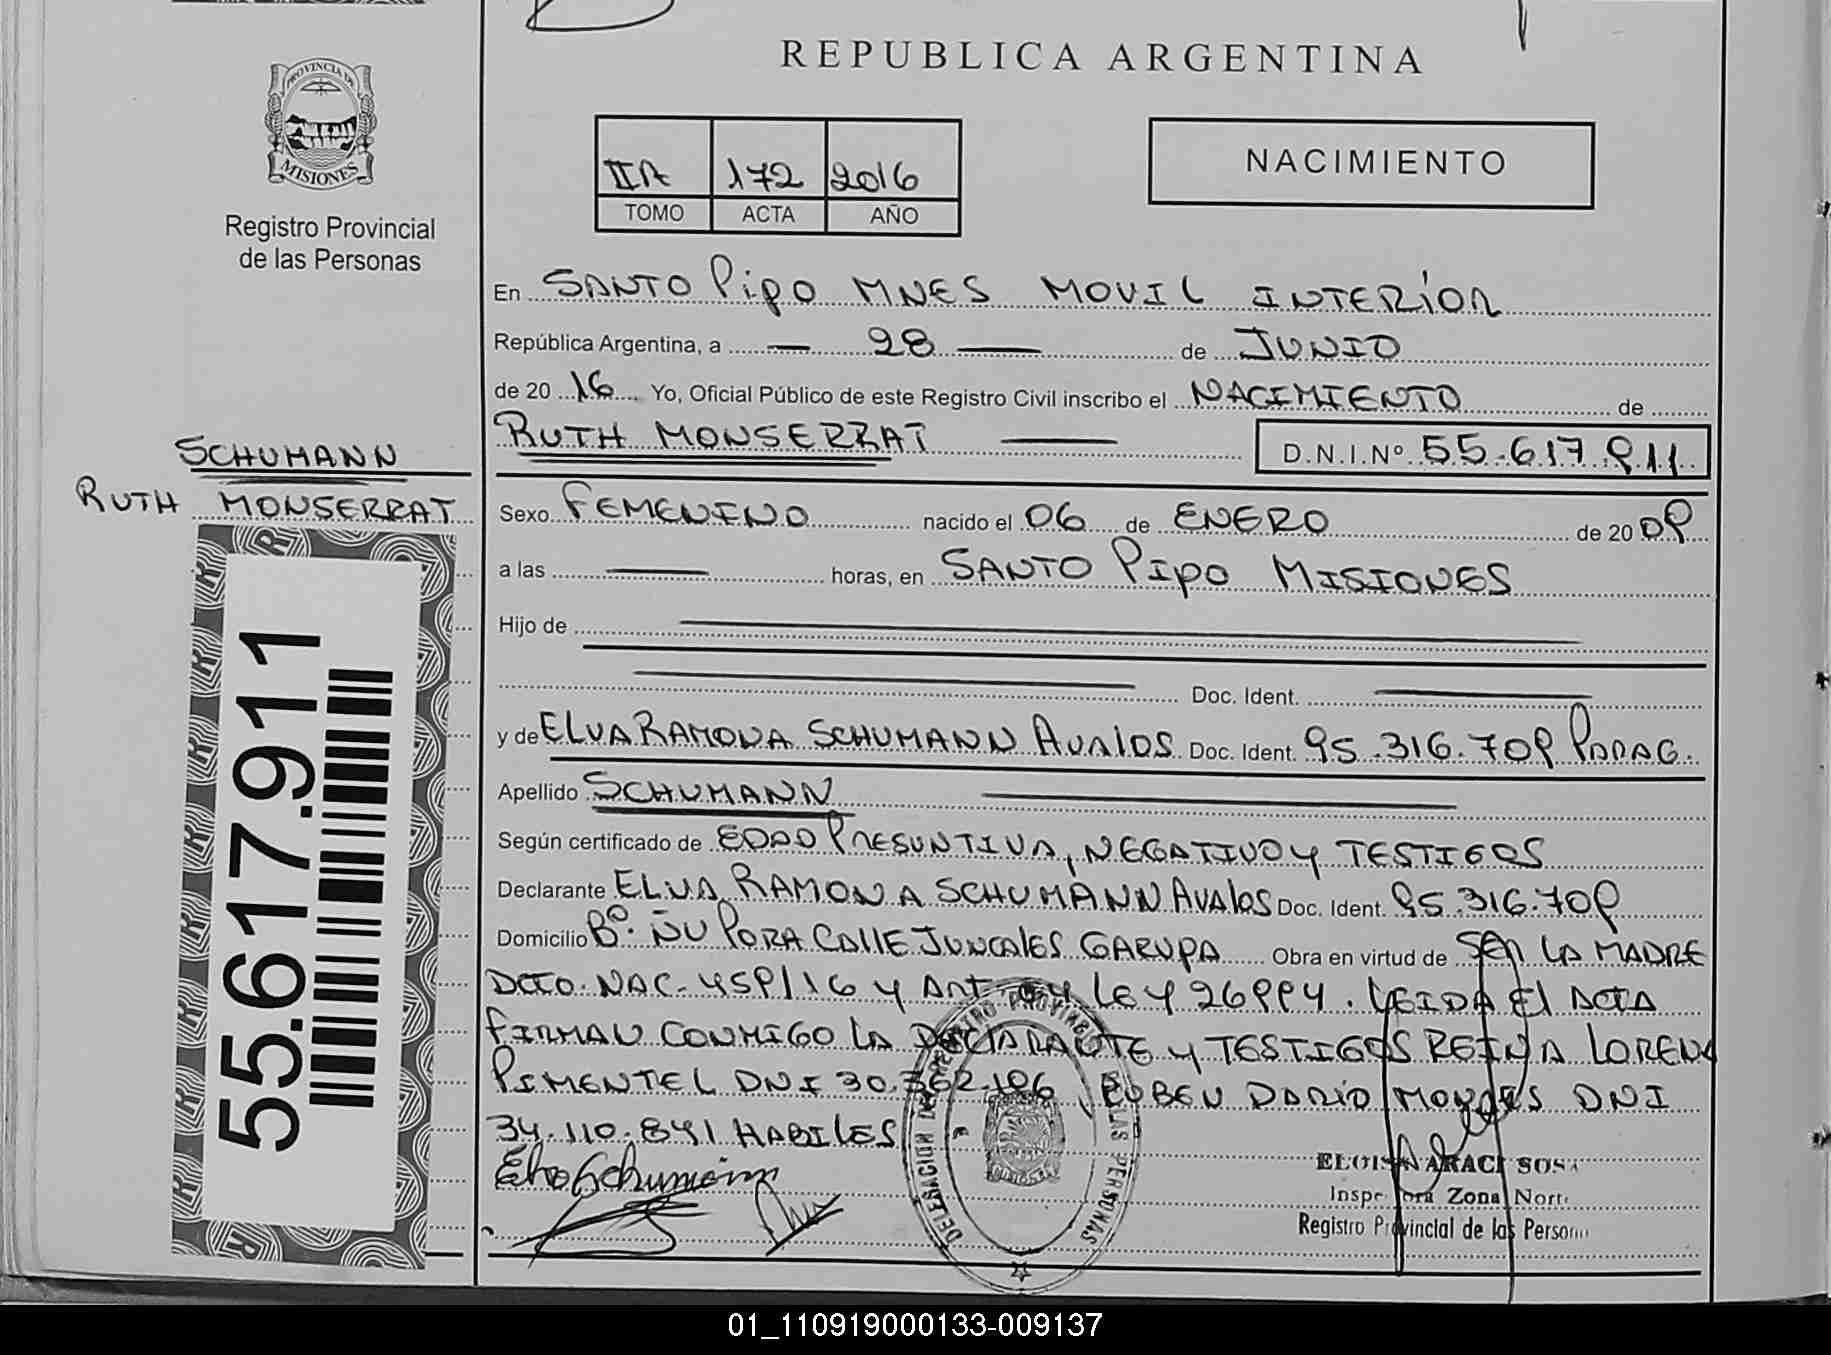 REPUBLICA ARGENTINA
PROVINCIA DE
MISIONES
Registro Provincial
de las Personas
IIA 172 2016
TOMO ACTA AÑO
NACIMIENTO
En SANTO PIPO MNES MOVIL INTERIOR
República Argentina, a — 28 — de JUNIO
de 20 16 Yo, Oficial Público de este Registro Civil inscribo el NACIMIENTO de
RUTH MONSERRAT — D.N.I.Nº 55.617.911
SCHUMANN
RUTH MONSERRAT
Sexo FEMENINO nacido el 06 de ENERO de 20 09
a las — horas, en SANTO PIPO MISIONES
Hijo de
Doc. Ident.
y de ELVA RAMONA SCHUMANN AVALOS Doc. Ident. 95.316.709 PARAG.
Apellido SCHUMANN
Según certificado de EDAD PRESUNTIVA, NEGATIVO Y TESTIGOS
Declarante ELVA RAMONA SCHUMANN AVALOS Doc. Ident. 95.316.709
Domicilio Bº ÑU PORA CALLE JUNCALES GARUPA Obra en virtud de SER LA MADRE
DCTO. NAC. 459/16 Y ART LEY 26994. LEIDA EL ACTA
FIRMAN CONMIGO LA DECLARANTE Y TESTIGOS REINA LORENA
PIMENTEL DNI 30.362.196 RUBEN DARIO DNI
34.110.841 HABILES
Elva Schumann
55.617.911
DELEGACION DEL REGISTRO PROVINCIAL DE LAS PERSONAS
ELOISA ARACI SOSA
Inspectora Zona Norte
Registro Provincial de las Personas
01_110919000133-009137